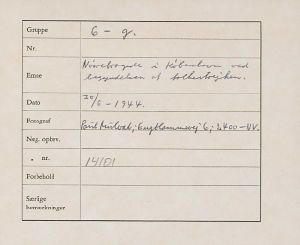 Gruppe 6 - g.
Nr.
Emne Nørrebrogade i København ved
begyndelsen af folkestrejken.
Dato 30/6 - 1944.
Fotograf 6; 2400 - NV.
Neg. opbev.
" nr. 14101
Forbehold
Særlige
bemærkninger